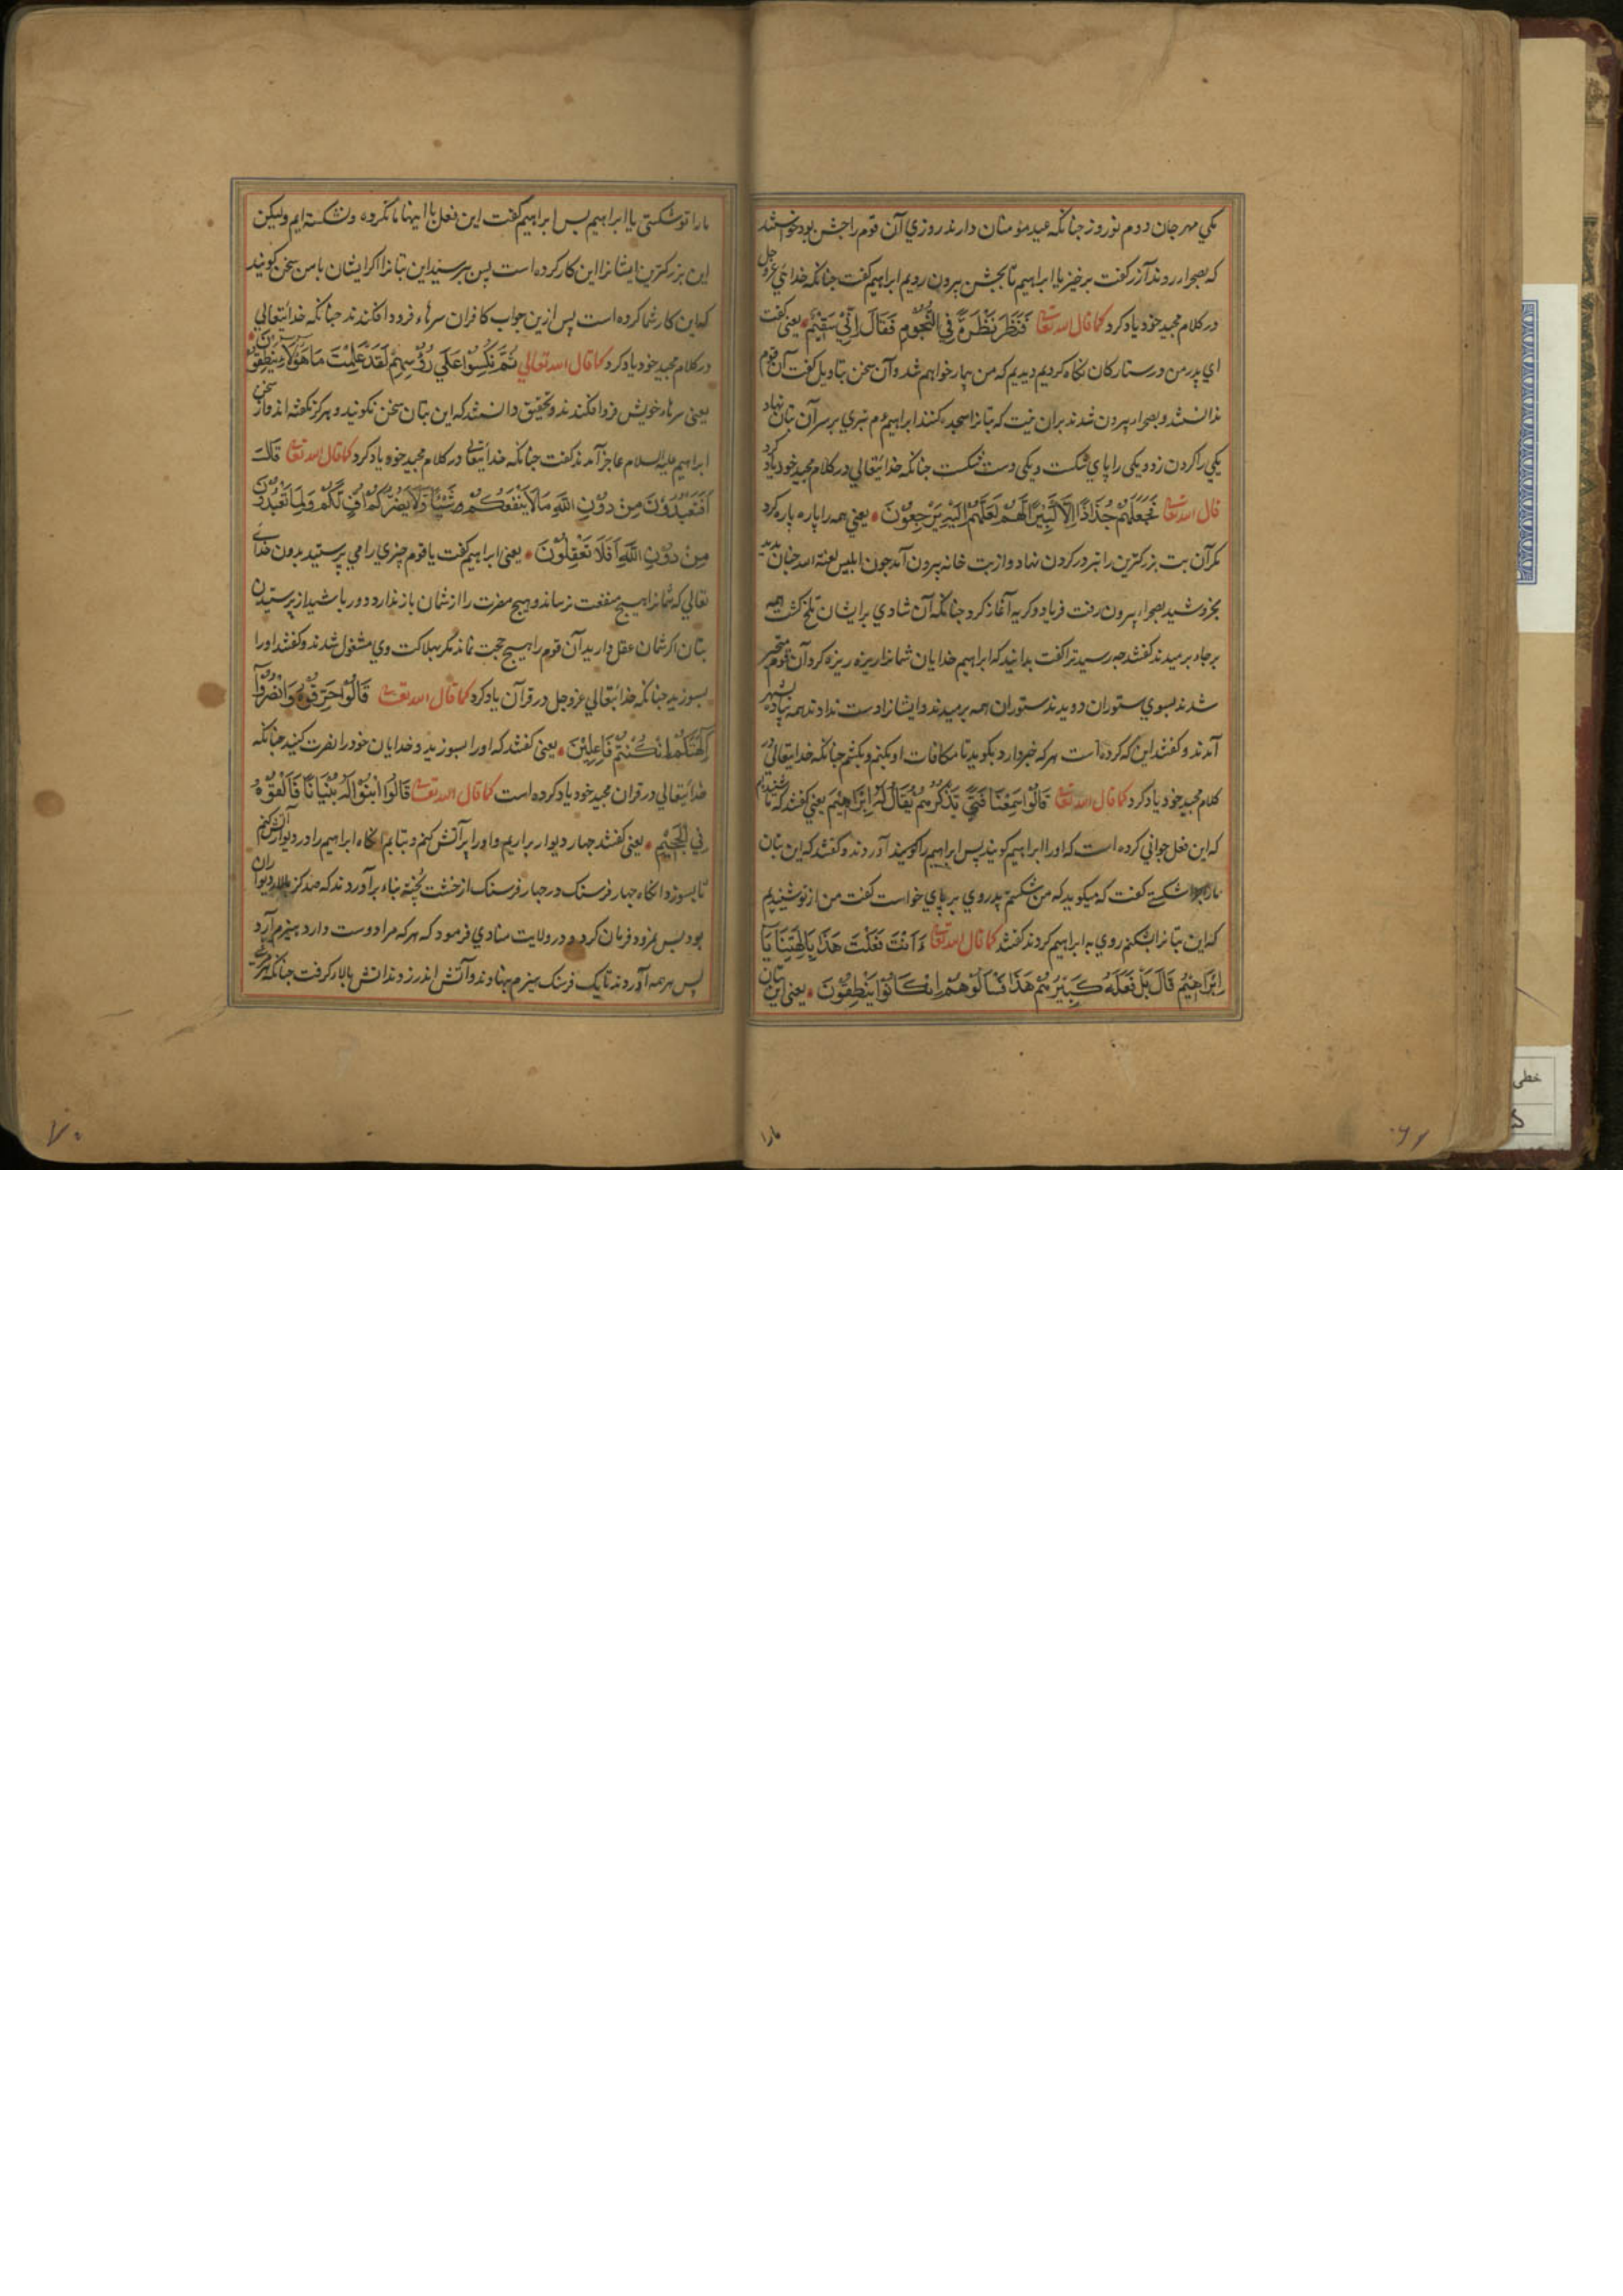 یکی مهرجان دوم نوروز جنانکه عید مؤمنان دارند روزي آن قوم را جشن بود خواستند
که بصحرا روند آزر کفت برخیز یا ابراهیم تا بجشن بیرون رویم ابراهیم کفت جنانکه خدائي عزوجل
در کلام مجید خود یاد کرد کما قال الله تعالی فَنَظَرَ نَظْرَةً فِي النُّجُومِ فَقَالَ اِنِّي سَقِيْمٌ یعنی کفت
اي پدر من در ستارکان نکاه کردیم دیدیم که من بیمار خواهم شد و آن سخن بتاویل کفت آن قوم
ندانستند و بصحرا بیرون شدند بران نیت که بتانرا سجده کنند ابراهیم ع م تبري بر سر آن بتان نهاد
یکي را کردن زد و یکی را پاي شکست و یکی دست شکست جنانکه خدائیتعالي در کلام مجید خود یاد کرد
قال الله تعالی فَجَعَلَهُمْ جُذَاذًا اِلَّا كَبِيْرًا لَهُمْ لَعَلَّهُمْ اِلَيْهِ يَرْجِعُوْنَ یعني همه را پاره پاره کرد
مکر آن بت بزرکترین را تبر در کردن نهاد و از بت خانه بیرون آمد جون ابلیس لعنة الله جنان بدید
بخروشید بصحرا بیرون رفت فریاد و کریه آغاز کرد جنانکه آن شادي برایشان تلخ کشت همه
برجاه برمیدند کفتند جه رسید ترا کفت بدانید که ابراهیم خدایان شمانرا ریزه ریزه کرد آن قوم متحیر
شدند بسوي ستوران دویدند ستوران همه برمیدند و ایشانرا دست ندادند همه پیاده بشهر
آمدند و کفتند این که کرده است هر که خبر دارد بکوید تا مکافات او بکنیم و بکشیم جنانکه خدایتعالي در
کلام مجید خود یاد کرد کما قال الله تعالی قَالُوْا سَمِعْنَا فَتًي يَذْكُرُهُمْ يُقَالُ لَهُ اِبْرَاهِيْمُ یعني کفتند که ما شنیدیم
که این فعل جواني کرده است که او را ابراهیم کویند پس ابراهیم را کوسیند آوردند و کفتند که این بتان
مارا شکستي کفت که میکوید که من شکستم پدر وي بر پاي خواست کفت من از تو شنیدم
که این بتانرا بشکنم روي به ابراهیم کردند کفتند کما قال الله تعالی ءَاَنْتَ فَعَلْتَ هَذَا بِاٰلِهَتِنَا يَا
اِبْرَاهِيْمُ قَالَ بَلْ فَعَلَهُ كَبِيْرُهُمْ هَذَا فَسْاَلُوْهُمْ اِنْ كَانُوْا يَنْطِقُوْنَ یعنی این بتان
مارا
مارا تو شکستی یا ابراهیم بس ابراهیم کفت این فعل با اینها ما نکرده و نشکسته ایم ولیکن
این بزرکترین ایشانرا این کار کرده است پس بپرسید این بتانرا اکر ایشان با من سخن کویند
که این کار شما کرده است پس ازین جواب کافران سرهاء فرود افکندند جنانکه خدائیتعالي
در کلام مجید خود یاد کرد کما قال الله تعالي ثُمَّ نُكِسُوْا عَلَي رُؤُسِهِمْ لَقَدْ عَلِمْتَ مَا هَؤُلَاءِ يَنْطِقُوْنَ
یعنی سرهاء خویش فرود افکندند و تحقیق دانستند که این بتان سخن نکویند و هرکز نکفته اند و از سخن
ابراهیم علیه السلام عاجز آمدند کفت جنانکه خدائیتعالی در کلام مجید خود یاد کرد کما قال الله تعالی قَالَ
اَفَتَعْبُدُوْنَ مِنْ دُوْنِ اللّٰهِ مَا لَا يَنْفَعُكُمْ شَيْئًا وَلَا يَضُرُّكُمْ اُفٍّ لَّكُمْ وَلِمَا تَعْبُدُوْنَ
مِنْ دُوْنِ اللّٰهِ اَفَلَا تَعْقِلُوْنَ یعنی ابراهیم کفت یا قوم چیزي را مي پرستید بدون خداي
تعالي که شمانرا هیچ منفعت نرساند و هیچ مضرت را از شمان باز ندارد دور باشید از پرستیدن
بتان اکر شمان عقل دارید آن قوم را هیچ حجت نماند مکر بهلاکت وي مشغول شدند و کفتند او را
بسوزید جنانکه خدائیتعالي عزوجل در قرآن یاد کرد کما قال الله تعالی قَالُوْا حَرِّقُوْهُ وَانْصُرُوْا
اٰلِهَتَكُمْ اِنْ كُنْتُمْ فَاعِلِيْنَ یعنی کفتند که او را بسوزید و خدایان خود را نصرت کنید جنانکه
خدائیتعالي در قران مجید خود یاد کرده است کما قال الله تعالی قَالُوا ابْنُوْا لَهُ بُنْيَانًا فَاَلْقُوْهُ
فِي الْجَحِيْمِ یعنی کفتند جهار دیوار براریم و او را بر آتش کنیم و بتابیم انکاه ابراهیم را در دیوار آتش کنیم
تا بسوزد انکاه جهار فرسنک در جهار فرسنک از خشت پخته بناء برآوردند که صد کز بالا دیوار آن
بود بس نمرود فرمان کرد و در ولایت منادي فرمود که هر که مرا دوست دارد هیزم آرد
پس هر همه آوردند تا یک فرسنک هیزم بنهادند و آتش اندر زدند اتش بالا کرفت جنانکه
خطی
۷۰